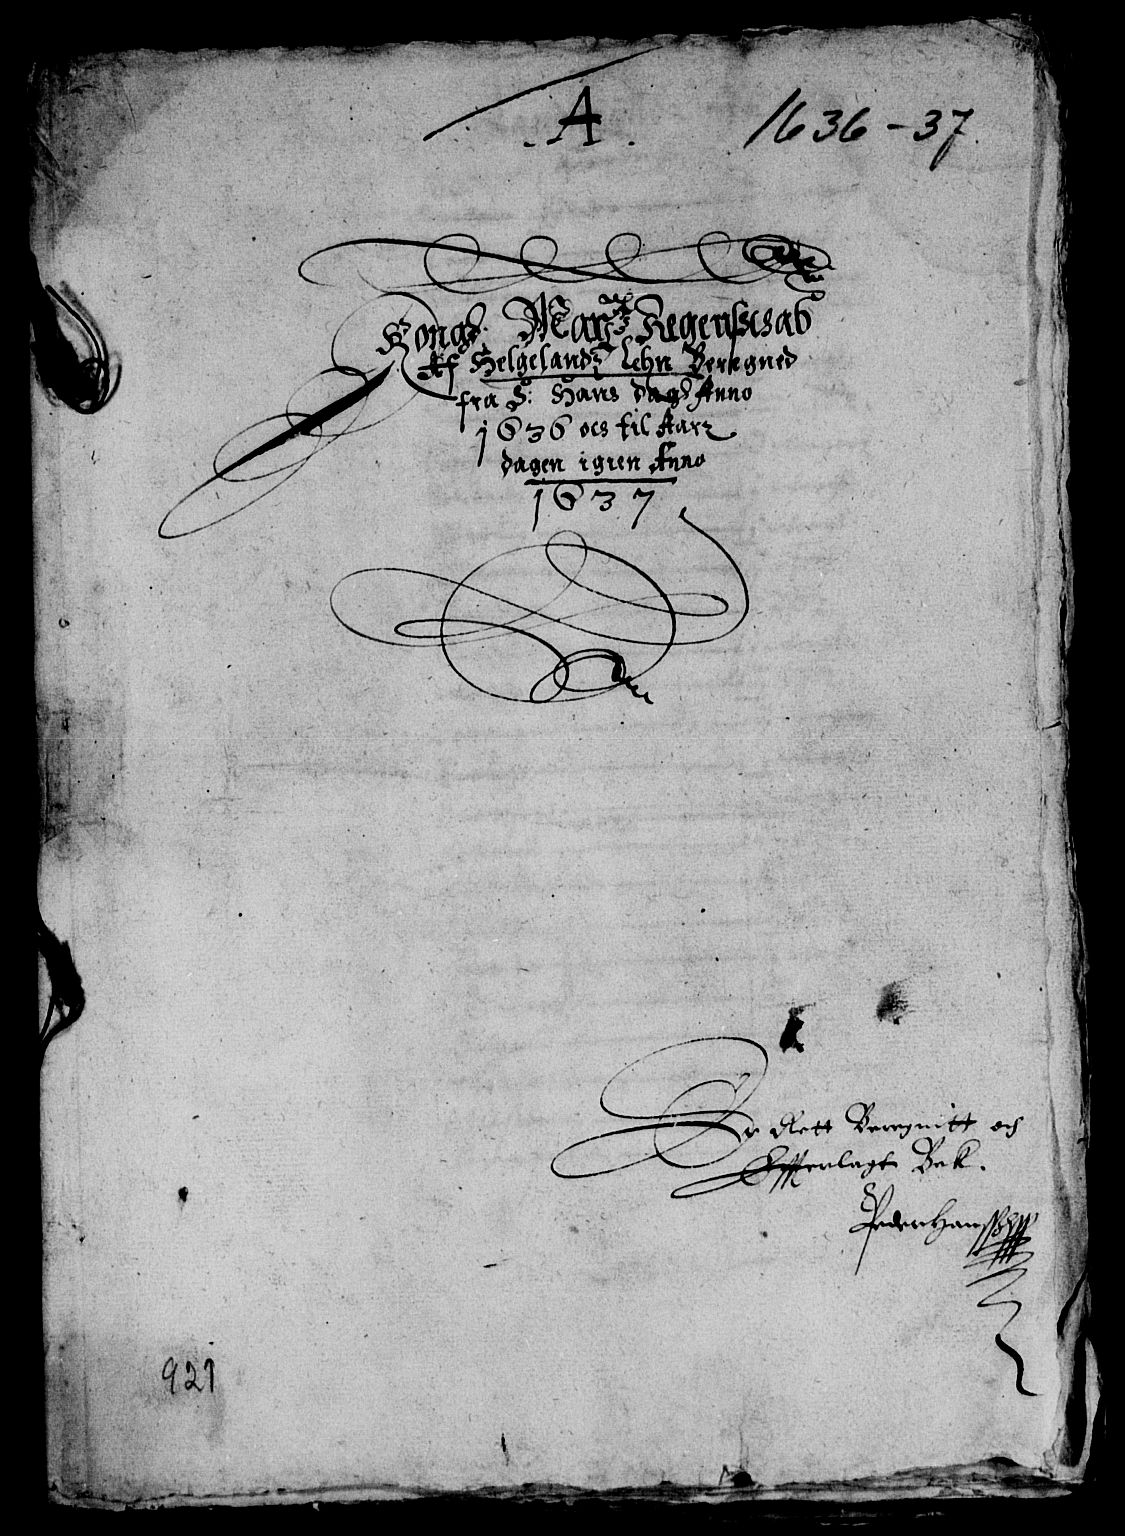 . A .
1636-37.
Kongs. May:ts Regenschab
Af Helgelandz Lehn Beregned
fra S: Hans dags Anno
1636 och til Aarz
dagen igien Anno
1637
Er Rett Beregnitt och
Offverlagt Bek.
Peder Hanss
921